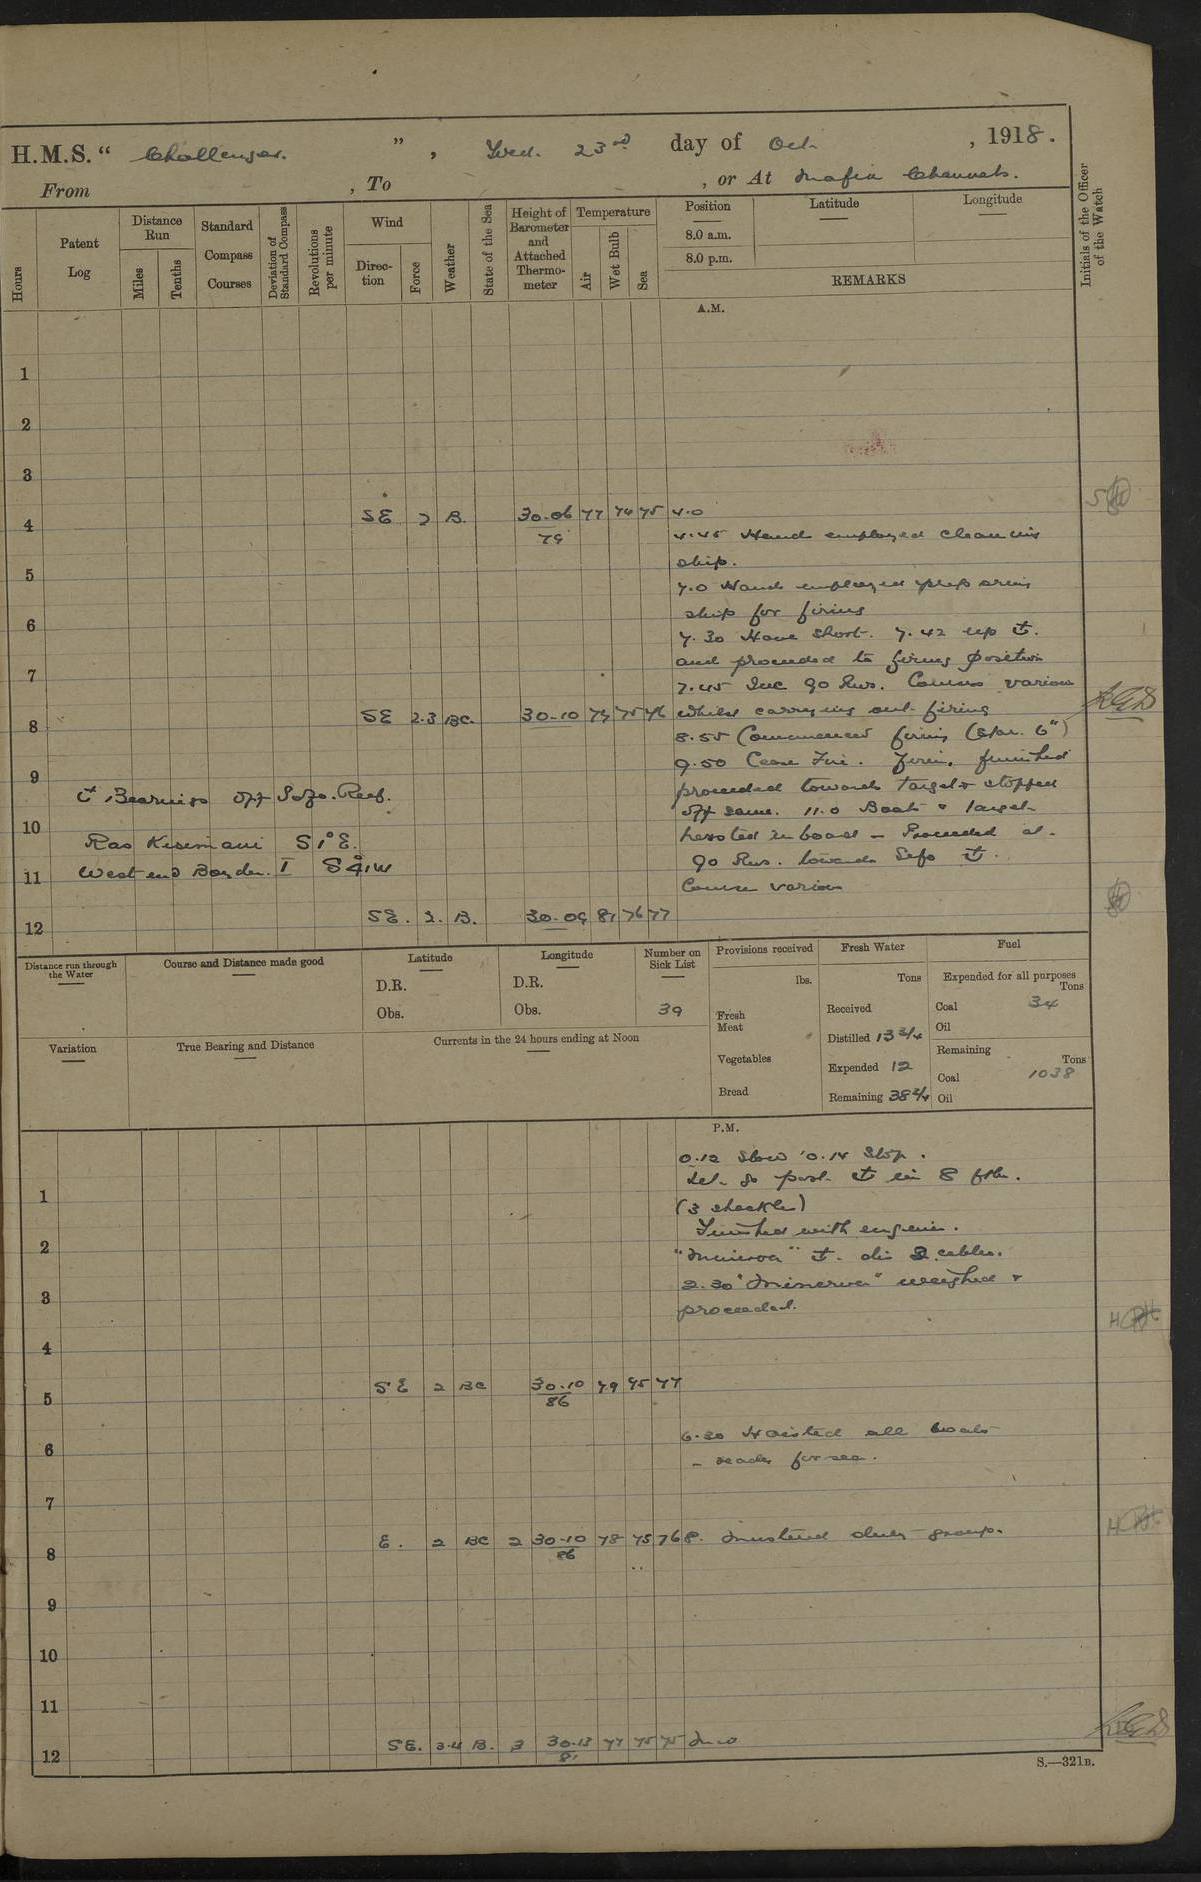 H.M.S. " Challenger. " , Wed. 23rd day of Oct. , 1918.
From , To , or At Mafia Channels.
Hours
Patent Log
Distance Run
Miles
Tenths
Standard Compass Courses
Deviation of Standard Compass
Revolutions per minute
Wind
Direction
Force
Weather
State of the Sea
Height of Barometer and Attached Thermometer
Temperature
Air
Wet Bulb
Sea
Position
8.0 a.m.
8.0 p.m.
Latitude
Longitude
REMARKS
Initials of the Officer of the Watch
A.M.
1
2
3
4 SE 2 B. 30.06 77 74 75 4.0
4.45 Hands employed cleaning
ship.
5
7.0 Hands employed preparing
ship for firing
6
7.30 Hove short. 7.42 up ⚓.
and proceeded to firing position
7
7.45 Inc 90 Revs. Courses various
8 SE 2.3 BC. 30.10 75 76 whilst carrying out firing
8.55 Commenced firing 6")
9
9.50 Cease Fire. Firing finished
⚓ Bearings off Reef.
proceeded towards target & stopped
off same. 11.0 Boats & target
10
Ras Kisimani S 1° E.
hoisted inboard - Proceeded at
West end I
90 Revs. towards Sefo ⚓.
11
Course various
12 SE. 2. B. 30.09 81 76 77
Distance run through the Water
Course and Distance made good
Latitude
D.R.
Obs.
Longitude
D.R.
Obs.
Number on Sick List
39
Provisions received
lbs.
Fresh Meat
Vegetables
Bread
Fresh Water
Tons
Received
Distilled 13 3/4
Expended 12
Remaining 38 2/4
Fuel
Expended for all purposes
Tons
Coal 34
Oil
Remaining
Tons
Coal 1038
Oil
Variation
True Bearing and Distance
Currents in the 24 hours ending at Noon
P.M.
0.12 Slow 0.14 Stop.
Let go port ⚓ in 8 fth.
1
(3 shackles)
Finished with engines.
2
"Minerva" ⚓. dis 2 cables.
2.30 "Minerva" weighed &
3
proceeded.
4
5 SE 2 BC 30.10 79 75 77
86
6.30 Hoisted all boats
6
- ready for sea.
7
8 E. 2 BC 2 30.10 78 75 76 8. Mustered duty group.
86
9
10
11
12 SE. 3.4 B. 3 30.13 77 75 75
81
S.—321B.